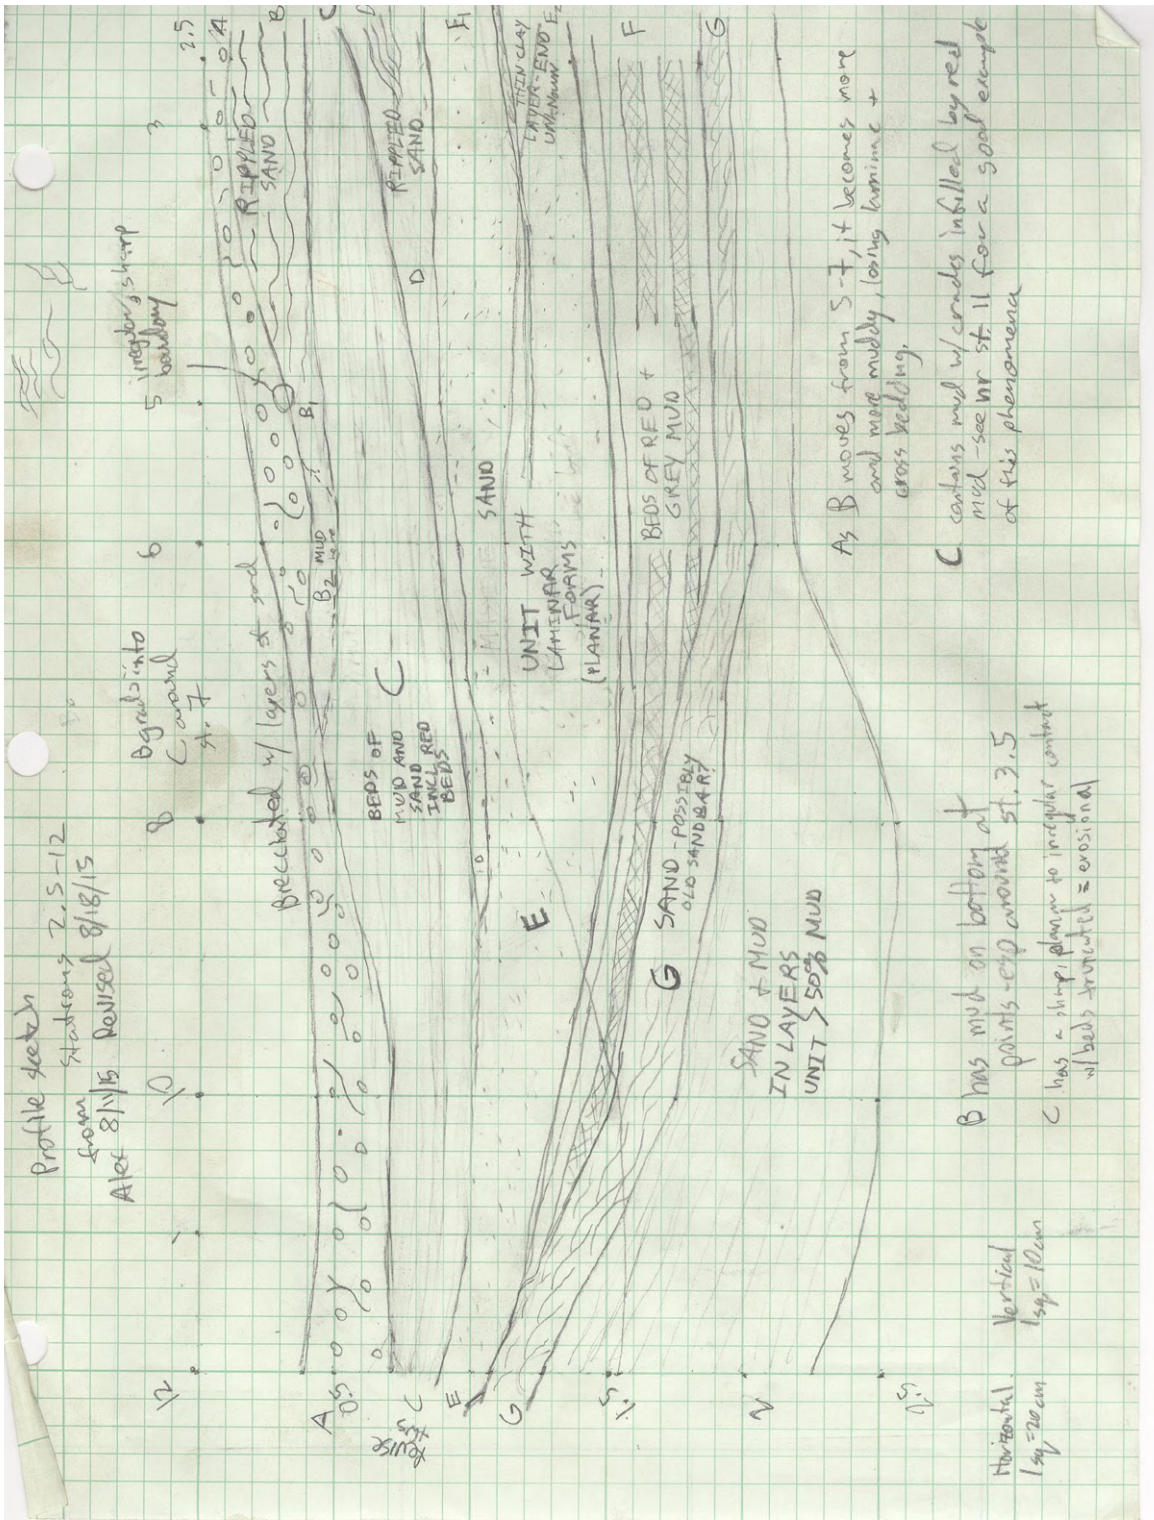 Profile sketch
Stations 2.5-12
from
Alex 8/11/15 Revised 8/18/15
12
10
8
6
5
3
2.5
B grades into
C around
st. 7
irregular, sharp
boundary
Brecciated w/ layers of sand
A
B
C
D
E1
E2
F
G
RIPPLED
SAND
B1
B2
MUD
here
RIPPLED
SAND
D
BEDS OF
MUD AND
SAND
INCL RED
BEDS
C
SAND
THIN CLAY
LAYER-END
UNKNOWN
UNIT WITH
LAMINAR
FORMS
(PLANAR)
E
BEDS OF RED +
GREY MUD
G
SAND - POSSIBLY
OLD SANDBAR?
SAND + MUD
IN LAYERS
UNIT > 50% MUD
A
0.5
C
revise
E
G
1.5
2
2.5
As B moves from 5-7, it becomes more
and more muddy, losing laminae +
cross bedding.
C contains mud w/ cracks infilled by red
mud - see nr st. 11 for a good example
of this phenomena
B has mud on bottom at
points - esp around st. 3.5
C has a sharp, planar to irregular contact
w/ beds truncated = erosional
Horizontal
1 sq = 20cm
Vertical
1 sq = 10cm